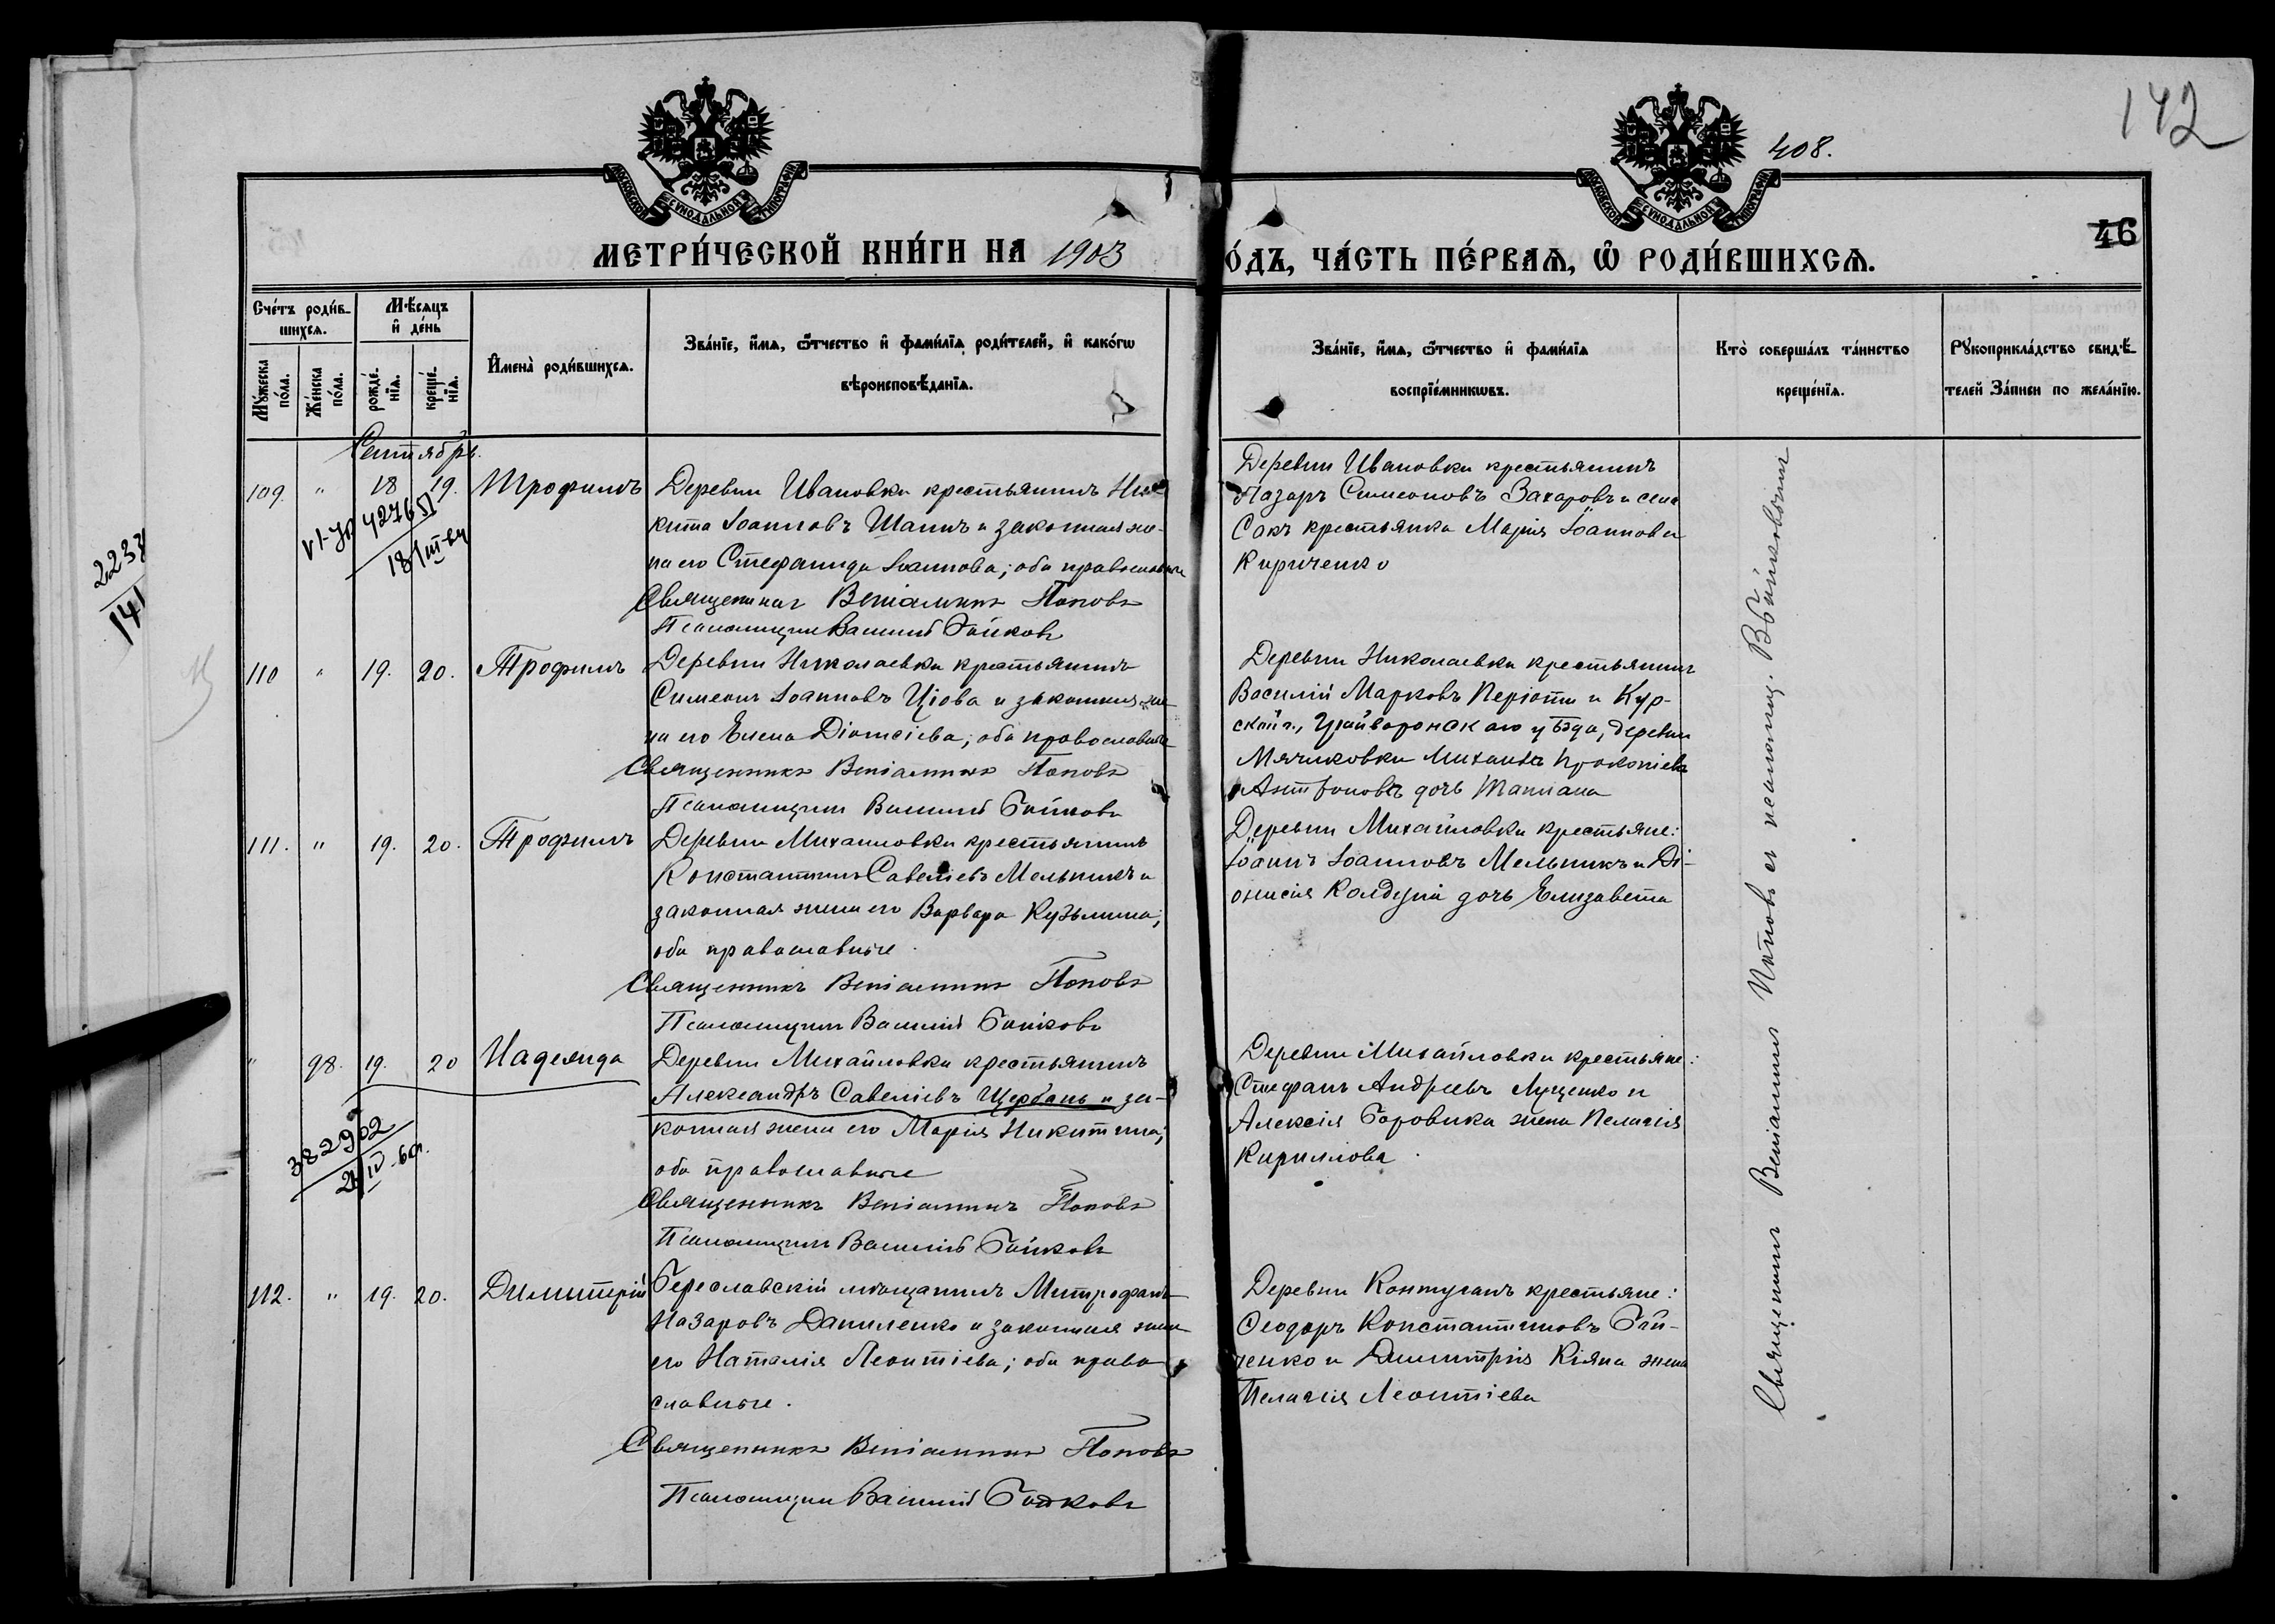 142
408.
46
МОСКОВСКОЙ СѴНОДАЛЬНОЙ ТИПОГРАФІИ
МОСКОВСКОЙ СѴНОДАЛЬНОЙ ТИПОГРАФІИ
МЕТРИ́ЧЕСКОЙ КНИ́ГИ НА 1903
О́ДЪ, ЧА́СТЬ ПЕ́РВАѦ, Ѡ҆ РОДИ́ВШИХСѦ.
Сче́тъ роди́в-
шихсѧ.
Мѣ́сѧцъ
и҆ де́нь
Мꙋ́жеска по́ла.
Же́нска по́ла.
рожде́нїѧ.
креще́нїѧ.
И҆мена̀ роди́вшихсѧ.
Зва́нїе, и҆́мѧ, ѻ҆́тчество и҆ фами́лїѧ роди́телей, и҆ како́гѡ
вѣроисповѣ́данїѧ.
Зва́нїе, и҆́мѧ, ѻ҆́тчество и҆ фами́лїѧ
воспрїе́мникѡвъ.
Кто̀ соверша́лъ та́инство
креще́нїѧ.
Рꙋкоприкла́дство свидѣ́-
телей за́писи по жела́нїю.
Сентябрь.
109. " 18 19. Трофимъ
Деревни Ивановки крестьянинъ Ни-
кита Іоанновъ Шапич и законная же-
на его Стефанида Іоаннова; оба православные
Священникъ Веніаминъ Поповъ
Псаломщикъ Василій Бойковъ
Деревни Ивановки крестьянинъ
Назаръ Симеоновъ Захаровъ и села
Сокъ крестьянка Марія Іоаннова
Кириченко
2237
141
110 " 19. 20. Трофимъ
Деревни Николаевки крестьянинъ
Симеонъ Іоанновъ Цюва и законная же-
на его Елена Діонисіева; оба православные
Священникъ Веніаминъ Поповъ
Псаломщикъ Василій Бойковъ
Деревни Николаевки крестьянинъ
Василій Марковъ и Кур-
ской г., Грайворонскаго уѣзда, деревни
Мячиковки Михаила Прокопіева
дочь Татіана
111. " 19. 20. Трофимъ
Деревни Михайловки крестьянинъ
Константинъ Савеліевъ Мельникъ и
законная жена его Варвара Кузьмина;
оба православные.
Священникъ Веніаминъ Поповъ
Псаломщикъ Василій Бойковъ
Деревни Михайловки крестьяне:
Іоаннъ Іоанновъ Мельникъ и Ді-
онисія дочь Елизавета
" 98. 19. 20 Надежда
Деревни Михайловки крестьянинъ
Александръ Савеліевъ Щербань и за-
конная жена его Марія Никитина;
оба православные
Священникъ Веніаминъ Поповъ
Псаломщикъ Василій Бойковъ
Деревни Михайловки крестьяне:
Стефанъ Андреевъ Луценко и
Алексія Боровика жена Пелагія
Кириллова.
382902
21/IV-60г.
112. " 19. 20. Димитрій
Бериславскій мѣщанинъ Митрофанъ
Назаровъ Даниленко и законная жена
его Наталія Леонтіева; оба право
славные.
Священникъ Веніаминъ Поповъ
Псаломщикъ Василій Бойковъ
Деревни Контуганъ крестьяне:
Ѳеодоръ Константиновъ Бой-
ченко и Димитрія Кіяна жена
Пелагія Леонтіева
Священникъ Веніаминъ Поповъ съ псаломщ. В. Бойковымъ